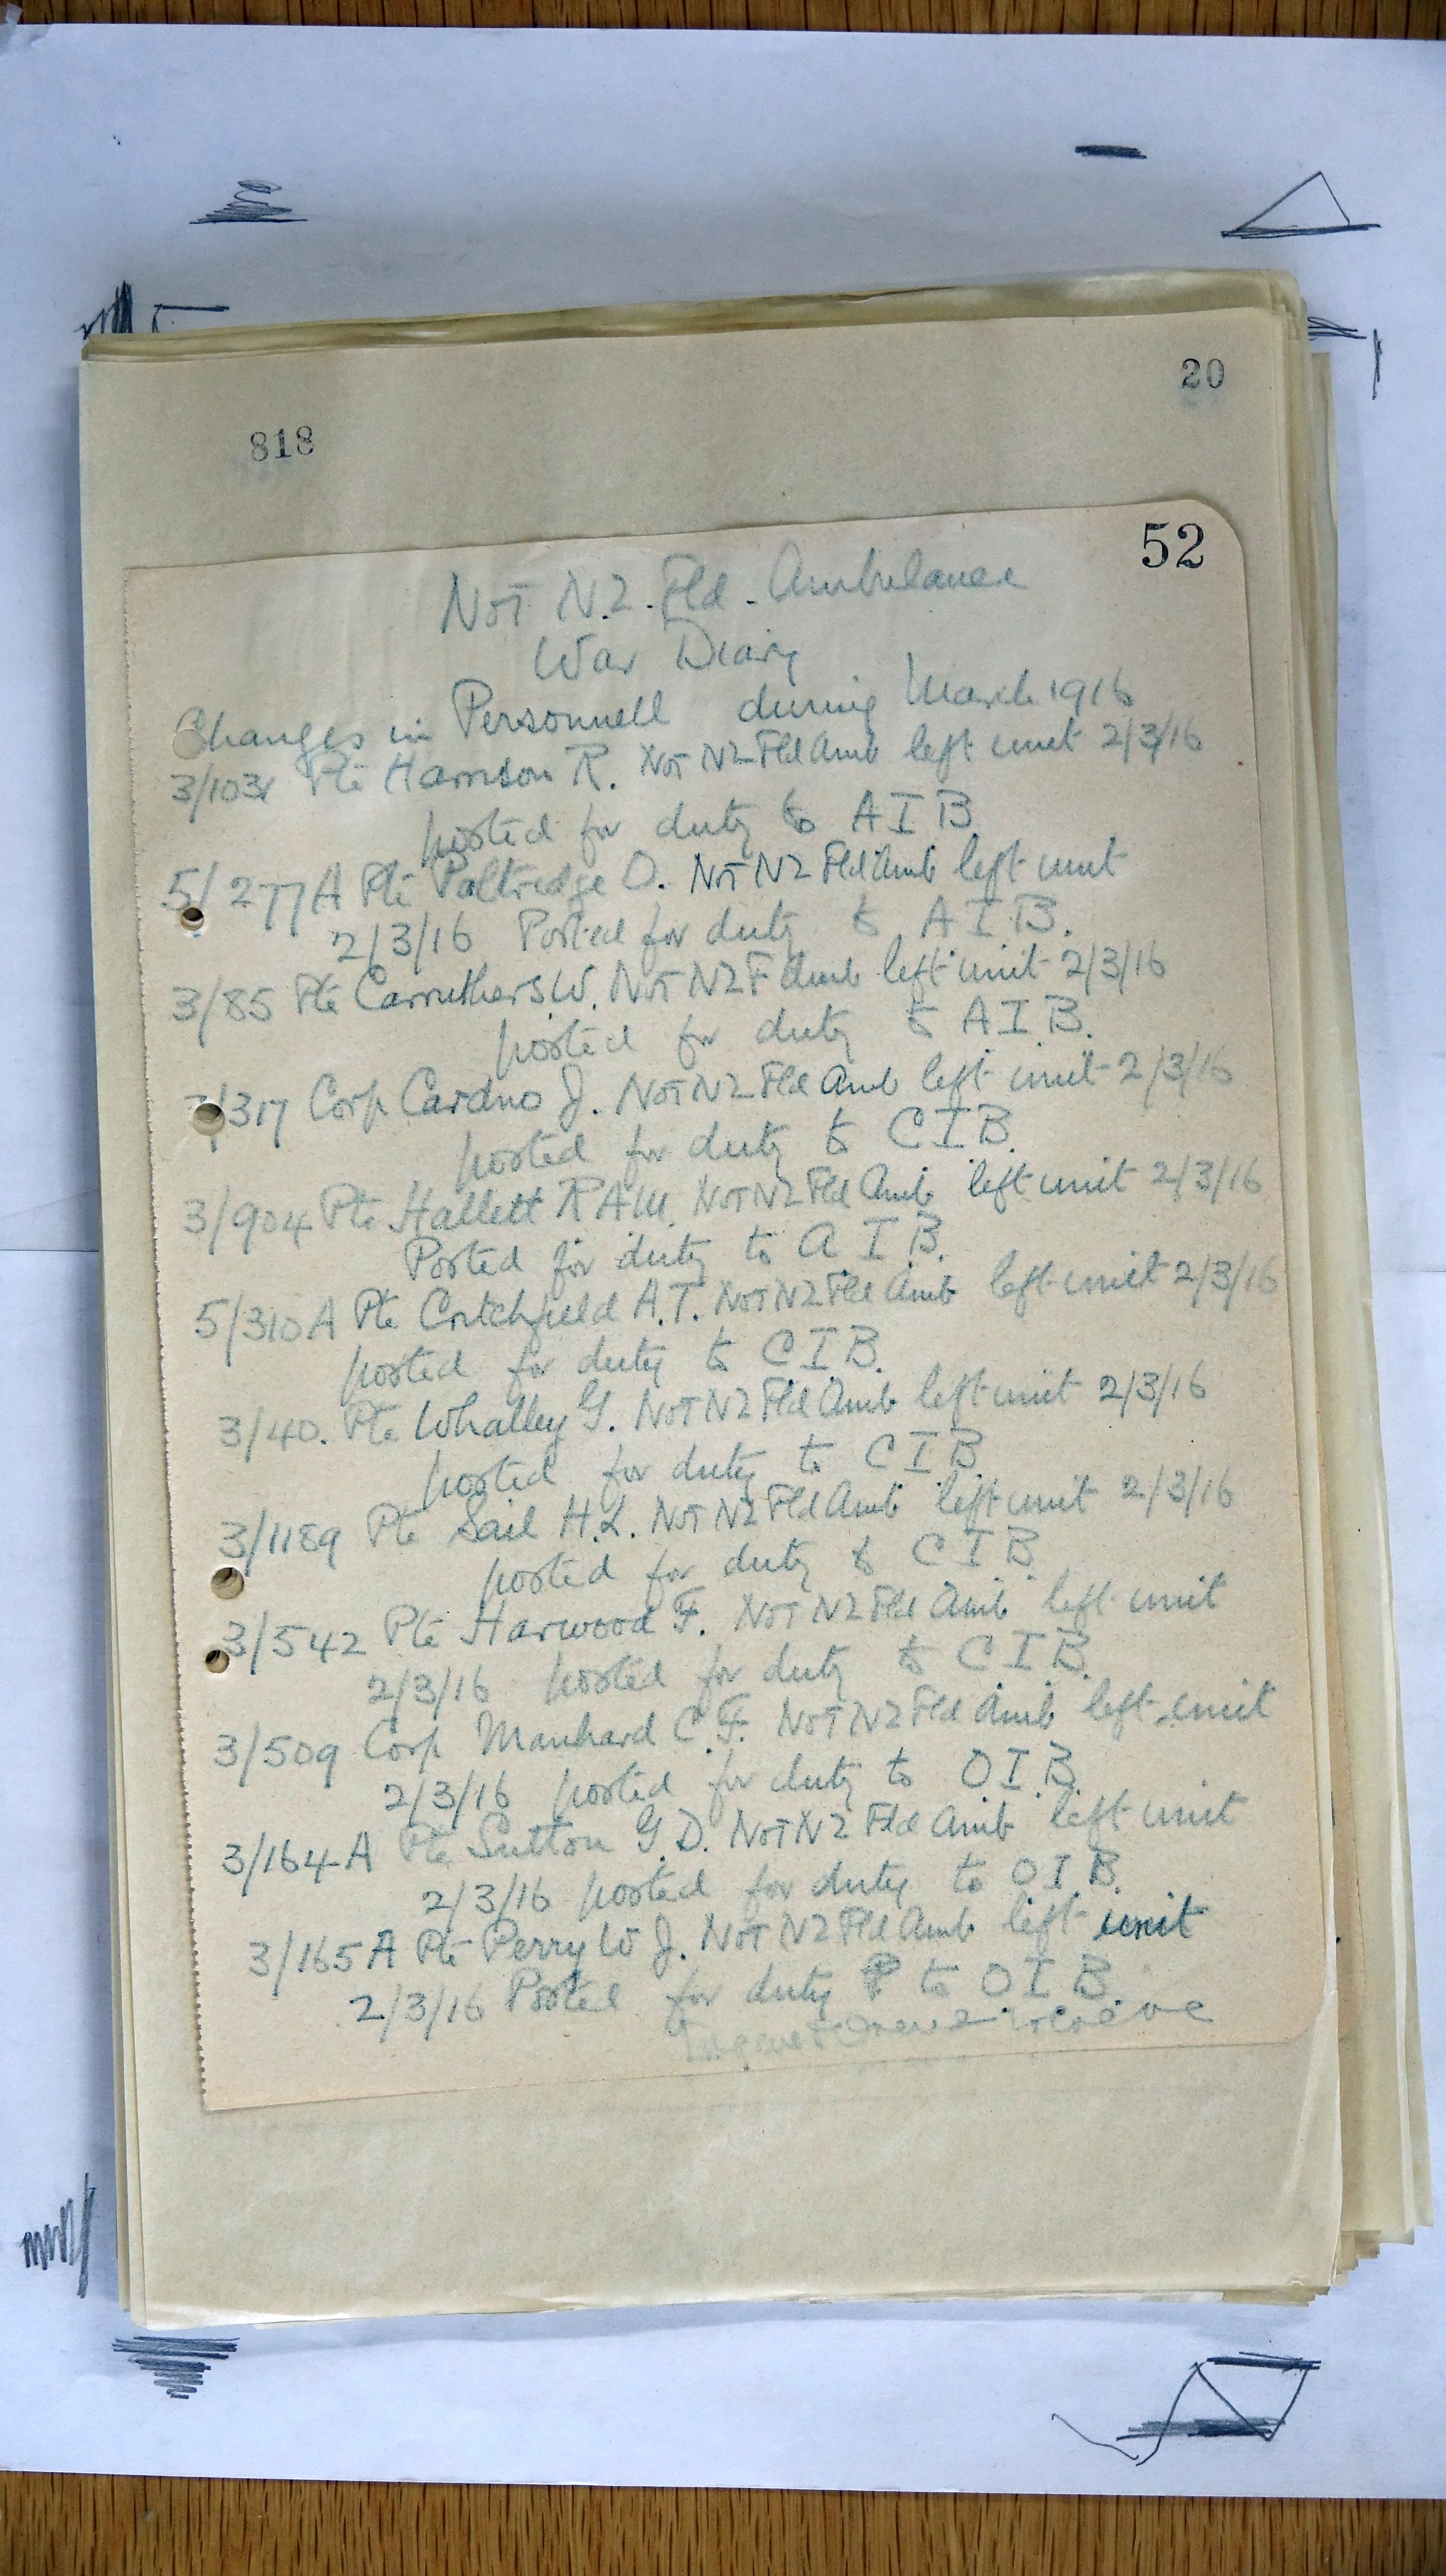 20
818
52
No1 N.Z. Fld. Ambulance
War Diary
Changes in Personnell during March 1916
Pte Harrison R. No1 NZ Fld Amb left unit 2/3/16
posted for duty to A I B
5/277A Pte Paltridge O. No1 NZ Fld Amb left unit
2/3/16 Posted for duty to A I B.
3/85 Pte Carruthers W. No1 NZ F Amb left unit 2/3/16
posted for duty to A I B.
Corp Cardno J. No1 NZ Fld Amb left unit 2/3/16
posted for duty to C I B.
3/904 Pte Hallett R A W. No1 NZ Fld Amb left unit 2/3/16
Posted for duty to A I B.
5/310A Pte Critchfield A.T. No1 NZ Fld Amb left unit 2/3/16
posted for duty to C I B.
3/40. Pte Whalley G. No1 NZ Fld Amb left unit 2/3/16
posted for duty to C I B
3/1189 Pte Sail H.L. No1 NZ Fld Amb left unit 2/3/16
posted for duty to C I B
3/542 Pte Harwood F. No1 NZ Fld Amb left unit
2/3/16 posted for duty to C I B.
3/509 Corp Manhard C.F. No1 NZ Fld Amb left unit
2/3/16 posted for duty to O I B.
3/164A Pte Sutton G.D. No1 NZ Fld Amb left unit
2/3/16 posted for duty to O I B.
3/165A Pte Perry W J. No1 NZ Fld Amb left unit
2/3/16 Posted for duty to O I B.